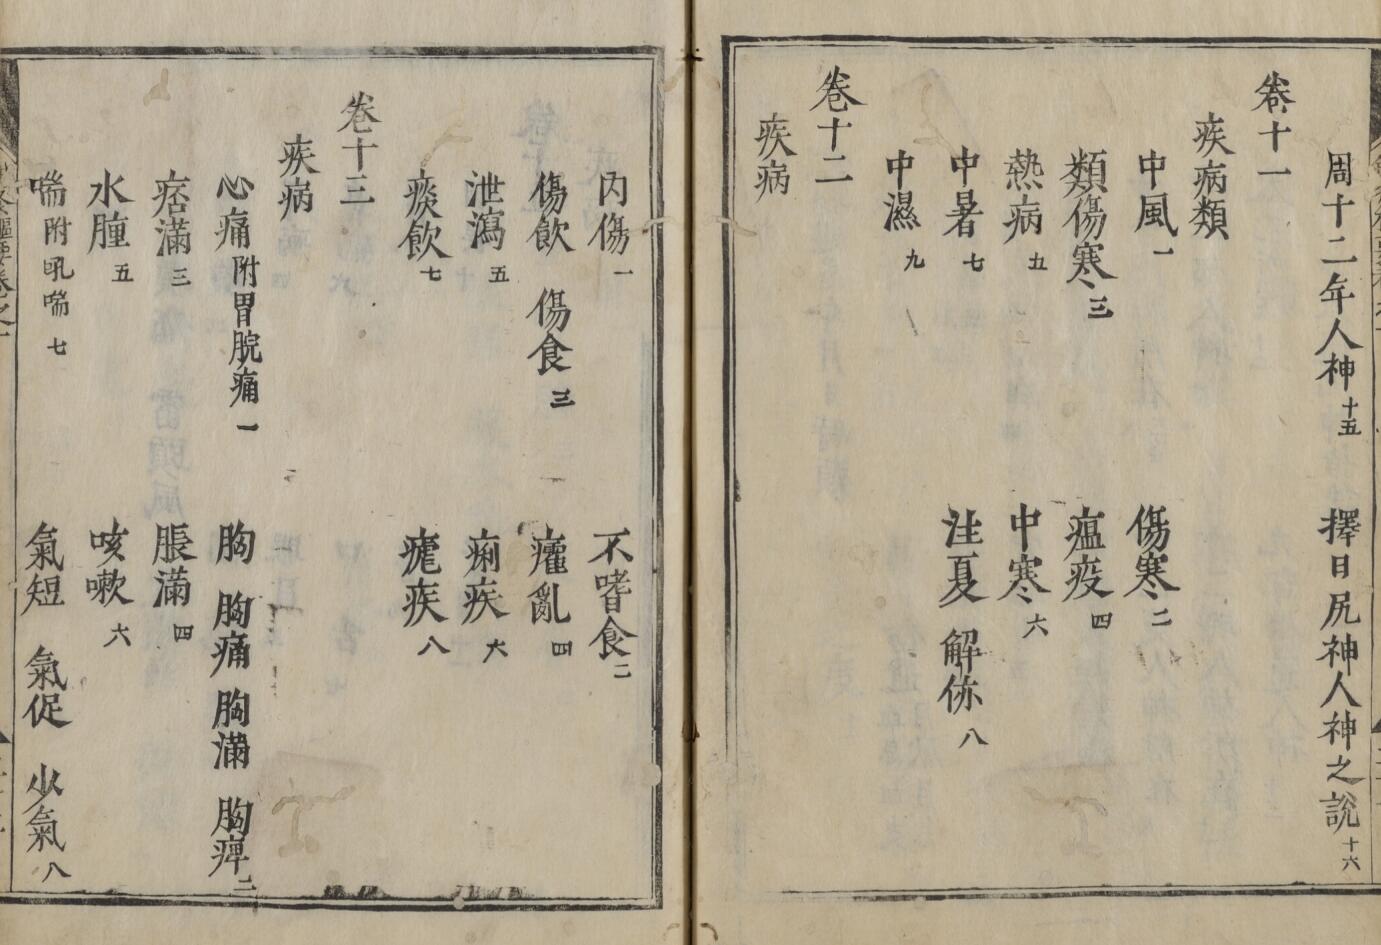 周十二年人神十五 擇日尻神人神之說十六
卷十一
疾病類
中風一 傷寒二
類傷寒三 瘟疫四
熱病五 中寒六
中暑七 注夏 解㑊八
中濕九
卷十二
疾病
內傷一 不嗜食二
傷飲 傷食三 癨亂四
泄瀉五 痢疾六
痰飲七 瘧疾八
卷十三
疾病
心痛附胃脘痛一 胸 胸痛 胸滿 胸痺二
痞滿三 脹滿四
水腫五 咳嗽六
喘附吼喘七 氣短 氣促 少氣八